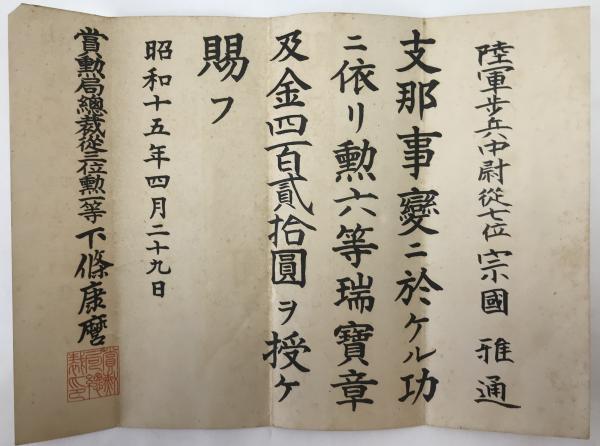 陸軍步兵中尉從七位宗國雅通
支那事變ニ於ケル功
ニ依リ勲六等瑞寶章
及金四百貳拾圓ヲ授ケ
賜フ
昭和十五年四月二十九日
賞勲局總裁從三位勲一等下條康麿
賞勲局總裁印